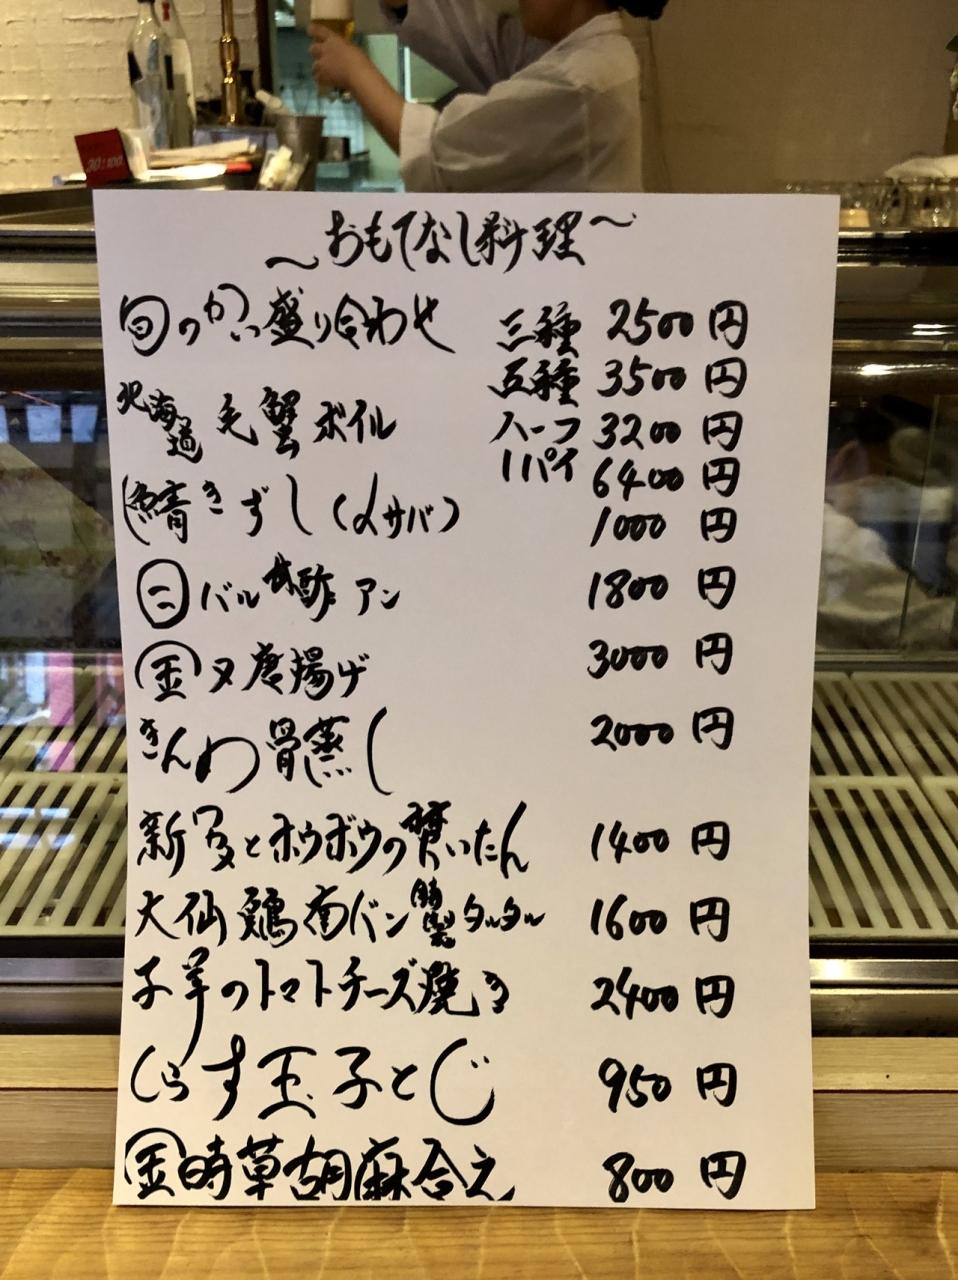 ～おもてなし料理～
旬のかい盛り合わせ 三種 2500円
五種 3500円
北海道 毛蟹ボイル ハーフ 3200円
1パイ 6400円
鯖きずし(〆サバ) 1000円
バル酢アン 1800円
唐揚げ 3000円
きんめ骨蒸し 2000円
新ワカメとホウボウの焚いたん 1400円
大仙鶏南バン 製タルタル 1600円
子羊のトマトチーズ焼き 2400円
しらす玉子とじ 950円
金時草胡麻合え 800円